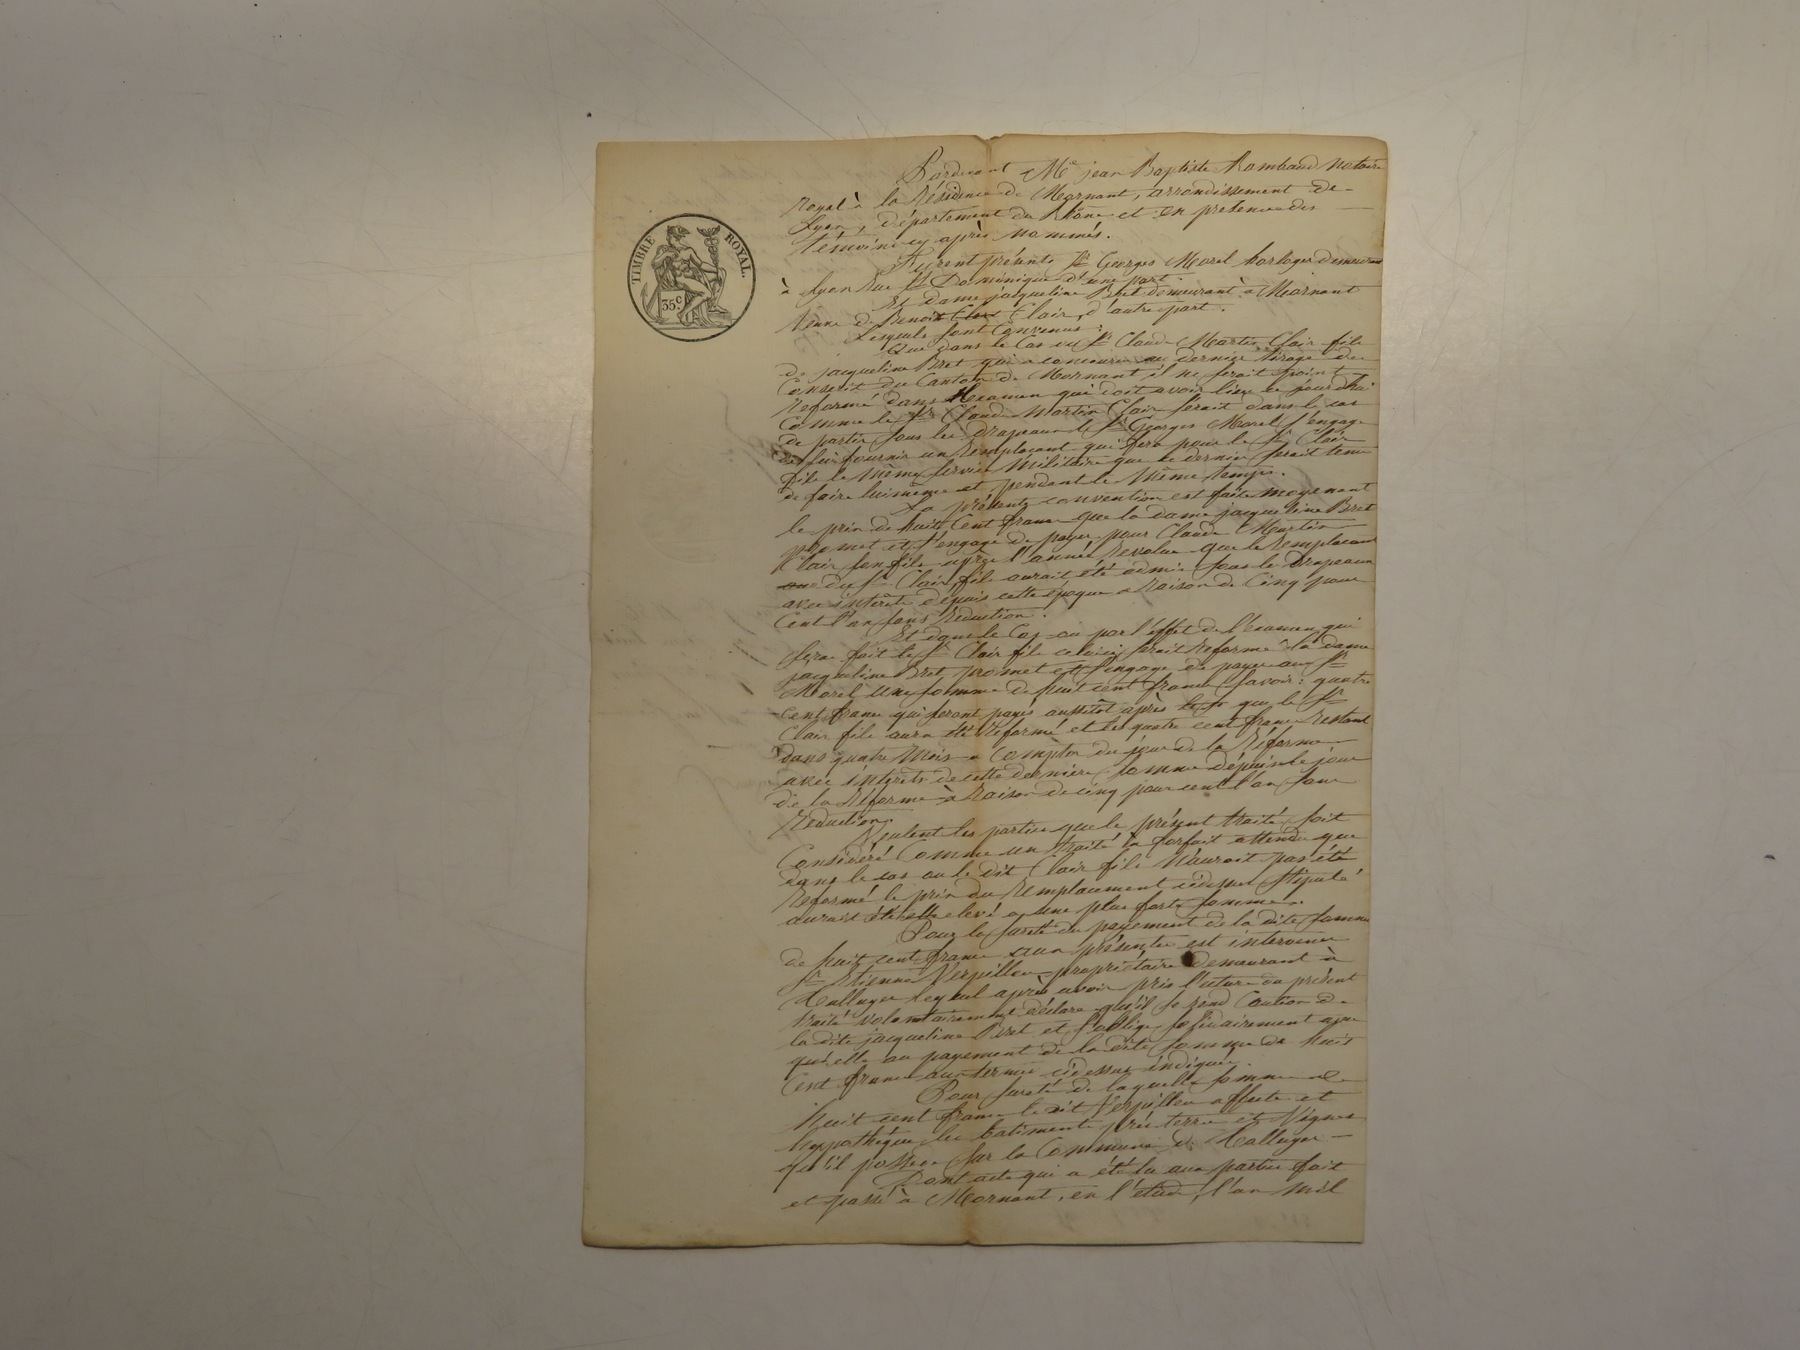 TIMBRE ROYAL.
35c
Pardevant Me jean Baptiste Rambaud Notaire
Royal à la Résidence de Mornant, arrondissement de
Lyon, département du Rhône et en présence des
témoins cy après nommés.
Furent présents Sr Georges Morel horloger demeurant
à Lyon Rue St Dominique d'une part.
Et dame jacqueline Bret demeurant à Mornant
Veuve de Benoit Clair, d'autre part.
Lesquels sont Convenus:
Que dans le Cas ou Sr Claude Martin Clair fils
de jacqueline Bret qui a concouru au dernier tirage des
Conscrit du Canton de Mornant il ne serait point
Reformé dans l'examen qui doit avoir lieu ce jourd'hui
Comme le Sr Claude Martin Clair serait dans le cas
de partir sous les Drapeaux le Sr Georges Morel s'engage
de lui fournir un Remplaçant qui fera pour le Sr Clair
fils le même service Militaire que ce dernier serait tenu
de faire luimême et pendant le même temps.
La présente convention est faite moyenant
le prix de huit Cent francs que la dame jacqueline Bret
promet et s'engage de payer pour Claude Martin
Clair son fils après l'année Revolue que le Remplaçant
du Sr Clair fils aurait été admis sous les Drapeaux
avec intérêts depuis cette époque a Raison de Cinq pour
Cent l'an sans Reduction.
Et dans le Cas ou par l'effet de l'examen qui
sera fait le Sr Clair fils celuici serait Reformé la dame
jacqueline Bret promet et s'engage de payer au Sr
Morel une somme de huit cent francs savoir: quatre
cent francs qui seront payés aussitôt après que le Sr
Clair fils aura été Réformé et les quatre cent francs Restant
dans quatre Mois a Compter du jour de la Réforme
avec intérêts de cette dernière somme depuis le jour
de la Réforme à Raison de cinq pour cent l'an sans
Reduction.
Veulent les parties que le présent traité soit
Considéré Comme un traité à forfait attendu que
dans le cas ou le dit Clair fils n'auroit pas été
Reformé le prix du Remplacement cidessus stipulé
aurait été elevé a une plus forte somme.
Pour la sureté du payement de la dite somme
de huit cent francs aux présentes est intervenu
Sr Etienne Verpilleu propriétaire demeurant à
Talluyer lequel après avoir pris lecture du présent
traité volontairement déclare qu'il se rend Caution de
la dite jacqueline Bret et s'oblige solidairement avec
qu'elle au payement de la dite somme de huit
Cent francs aux termes cidessus indiqués.
Pour sureté de laquelle somme de
huit cent francs le dit Verpilleu affecte et
hypothèque les batiments prés terres et Vignes
qu'il possède sur la Commune de Talluyer
Dont acte qui a été lu aux parties fait
et passé à Mornant, en l'étude, l'an mil